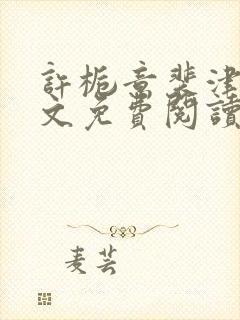 許栀章裴津
文免費閱讀
麦芸